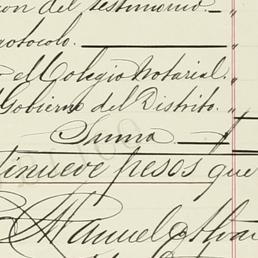 ion del testimonio.
rotocolo.
el Colegio Notarial. "
Gobierno del Distrito. "
Suma
tinueve pesos que
Manuel Alva